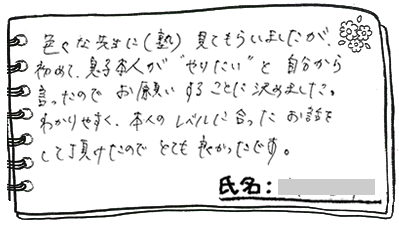 色々な先生に(塾)見てもらいましたが、
初めて、息子本人が"やりたい"と自分から
言ったのでお願いすることに決めました。
わかりやすく、本人のレベルに合ったお話を
して頂けたのでとても良かったです。
氏名: